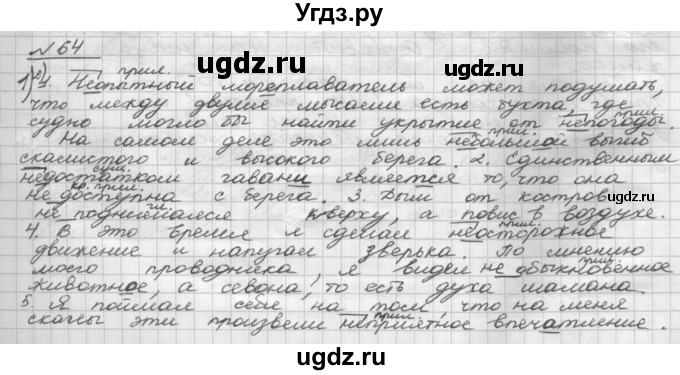 Угдз.ру
№ 64
1) 1. Неопытный прил. мореплаватель может подумать,
что между двумя мысами есть бухта, где
судно могло бы найти укрытие от непогоды.
На самом деле это лишь небольшой прил. выгиб
скалистого и высокого берега. 2. Единственным
недостатком сущ. гавани является то, что она
не доступна кр. прил. с берега. 3. Дым от костров
не поднимался гл. кверху, а повис в воздухе.
4. В это время я сделал неосторожное прил.
движение и напугал зверька. По мнению
моего проводника, я видел не обыкновенное прил.
животное, а севона, то есть духа шамана.
5. Я поймал себя на том, что на меня
скалы эти произвели неприятное прил. впечатление.
ugdz.ru
ugdz.ru
ugdz.ru
ugdz.ru
ugdz.ru
ugdz.ru
ugdz.ru
ugdz.ru
ugdz.ru
ugdz.ru
ugdz.ru